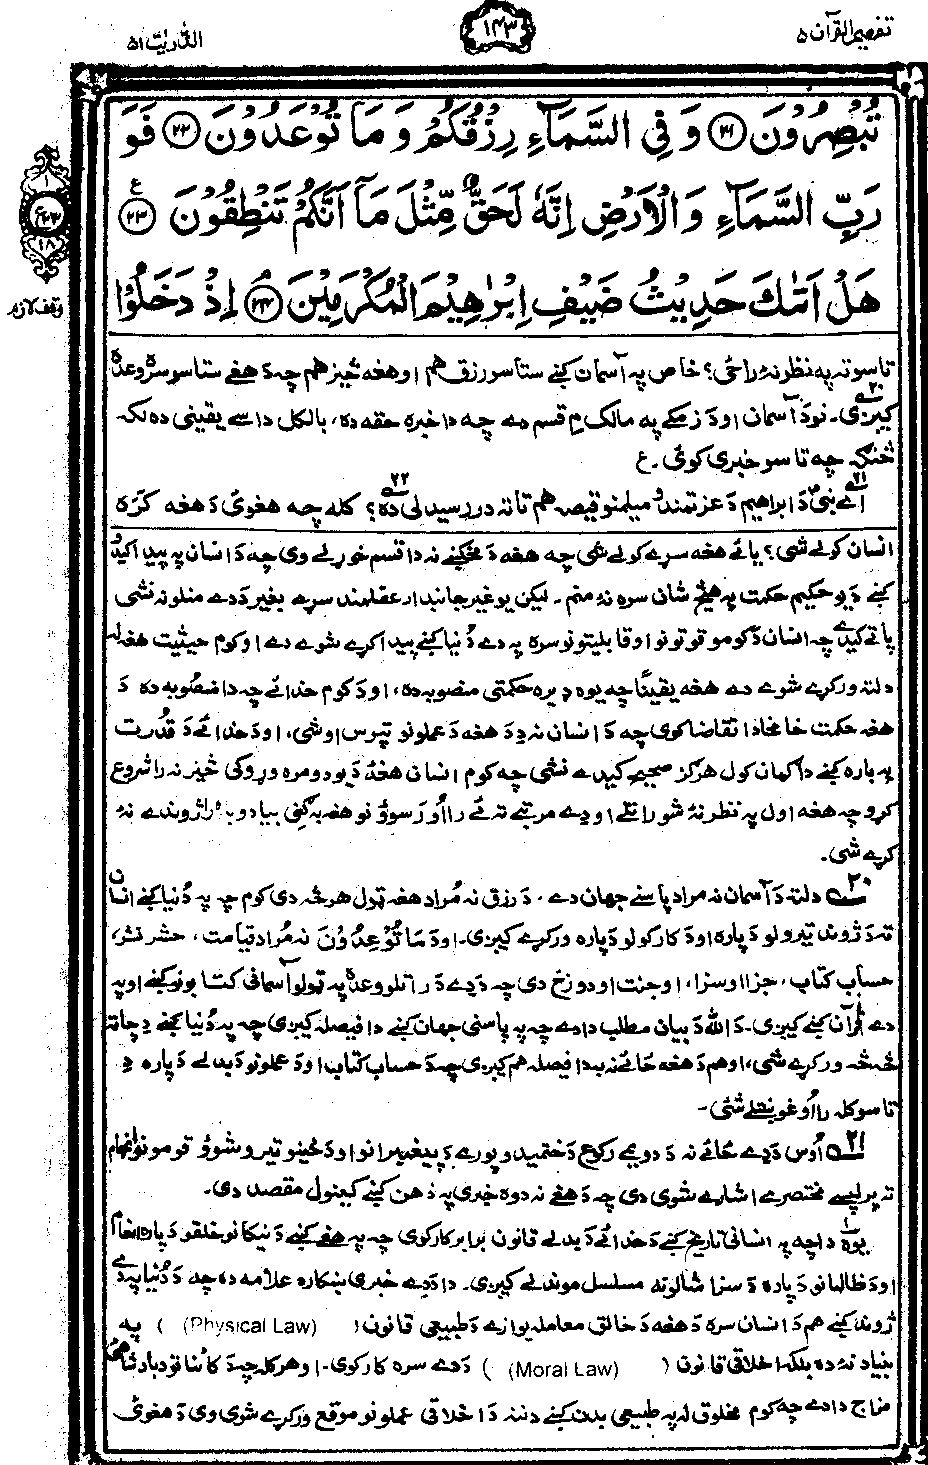 تفهیم القرآن ۵
۱۴۳
الذّٰریٰت ۵۱
تُبْصِرُوْنَ ﴿۲۱﴾ وَ فِي السَّمَآءِ رِزْقُكُمْ وَ مَا تُوْعَدُوْنَ ﴿۲۲﴾ فَوَ
رَبِّ السَّمَآءِ وَ الْاَرْضِ اِنَّهٗ لَحَقٌّ مِّثْلَ مَآ اَنَّكُمْ تَنْطِقُوْنَ ﴿۲۳﴾ ع
هَلْ اَتٰىكَ حَدِيْثُ ضَيْفِ اِبْرٰهِيْمَ الْمُكْرَمِيْنَ ﴿۲۴﴾ اِذْ دَخَلُوْا
۱
۱۸
وقف لازم
تاسو ته په نظر نۀ راځی؟ خاص په آسمان کښے ستاسو رزق هم او هغه څیز هم چه دَ هغے ستاسو سره وعده
کیږی۔۲۰ نو دَ آسمان او دَ زمکے په مالک مِ قسم دے چه دا خبره حقه ده، بالکل داسے یقینی ده لکه
څنګه چه تاسو خبرې کوئ۔ ع
۲۱ اے نبیؐ دَ ابراهیم دَ عزتمندو میلمنو قیصه هم تا ته در رسیدلی ده؟۲۲ کله چه هغوئ دَ هغه کره
انسان کولے شی؟ یا ئے هغه سړے کولے شی چه هغه دَ مخکښے نه دا قسم خوړلے وی چه دَ انسان په پیدا کیدُو
کښے دَ یو حکیم حکمت په هیڅ شان سره نۀ منم۔ لیکن یو غیر جانبدار عقلمند سړے بغیر دَ دے منلو نۀ شی
پاتے کیدے چه انسان دَ کومو قوتونو او قابلیتونو سره په دے دُنیا کښے پیدا کړے شوے دے او کوم حیثیت هغه له
دلته ورکړے شوے دے هغه یقیناً چه یوه ډیره حکمتی منصوبه ده، او دَ کوم خدائے چه دا منصوبه ده دَ
هغه حکمت خامخا دا تقاضا کوی چه دَ انسان نه دِ دَ هغه دَ عملونو تپوس اوشی، او دَ خدائے دَ قدرت
په باره کښے دا ګمان کول هرګز صحیح کیدے نۀ شی چه کوم انسان هغۀ دَ یو دومره وړوکی څیز نه را شروع
کړو چه هغه اول په نظر نۀ شو راتلے او دے مرتبے ته ئے را اُورسوؤ نو هغه به کنی بیا دوباره ژوندے نۀ
کړے شی۔
۲۰ دلته دَ آسمان نه مراد پاسنے جهان دے، دَ رزق نه مُراد هغه ټول هرڅه دی کوم چه په دُنیا کښے انسان
ته دَ ژوند تیرولو دَ پاره او دَ کار کولو دَ پاره ورکړے کیږی۔ او دَ مَا تُوْعَدُوْنَ نه مُراد قیامت، حشر نشر،
حساب کتاب، جزا او سزا، او جنت او دوزخ دی چه دَ دے دَ راتلو وعده په ټولو آسمانی کتابونو کښے او په
دے قرآن کښے کیږی۔ دَ اللہ دَ بیان مطلب دا دے چه په پاسنی جهان کښے دا فیصله کیږی چه په دُنیا کښے دِ چا ته
څۀ څه ورکړے شی، او هم دَ هغه ځائے نه به دا فیصله هم کیږی چه دَ حساب کتاب او دَ عملونو دَ بدلے دَ پاره دِ
تاسو کله را اُوغوښتلے شئ۔
۲۱ اُوس دَ دے ځائے نه دَ دویمے رکوع دَ ختمیدو پورے دَ پیغمبرانو او دَ ځینو تیر و شوؤ قومونو انجام
ته پرلپسے مختصرے اشارے شوی دی چه دَ هغے نه دوه خبرې په ذهن کښے کینول مقصد دی۔
یوه دا چه په انسانی تاریخ کښے دَ خدائے دَ بدلے قانون برابر کار کوی چه په هغے کښے دَ نیکانو خلقو دَ پاره دَ انعام
او دَ ظالمانو دَ پاره دَ سزا مثالونه مسلسل موندلے کیږی۔ دا دَ دے خبرې ښکاره علامه ده چه دَ دُنیا په دے
ژوند کښے هم دَ انسان سره دَ هغه دَ خالق معامله یوازے دَ طبیعی قانون (Physical Law) په
بنیاد نه ده بلکه اخلاقی قانون (Moral Law) دَ دے سره کار کوی۔ او هر کله چه دَ کائناتو دَ بادشاهئ
مزاج دا دے چه کوم مخلوق له په طبیعی بدن کښے دننه دَ اخلاقی عملونو موقع ورکړے شوی وی دَ هغوئ